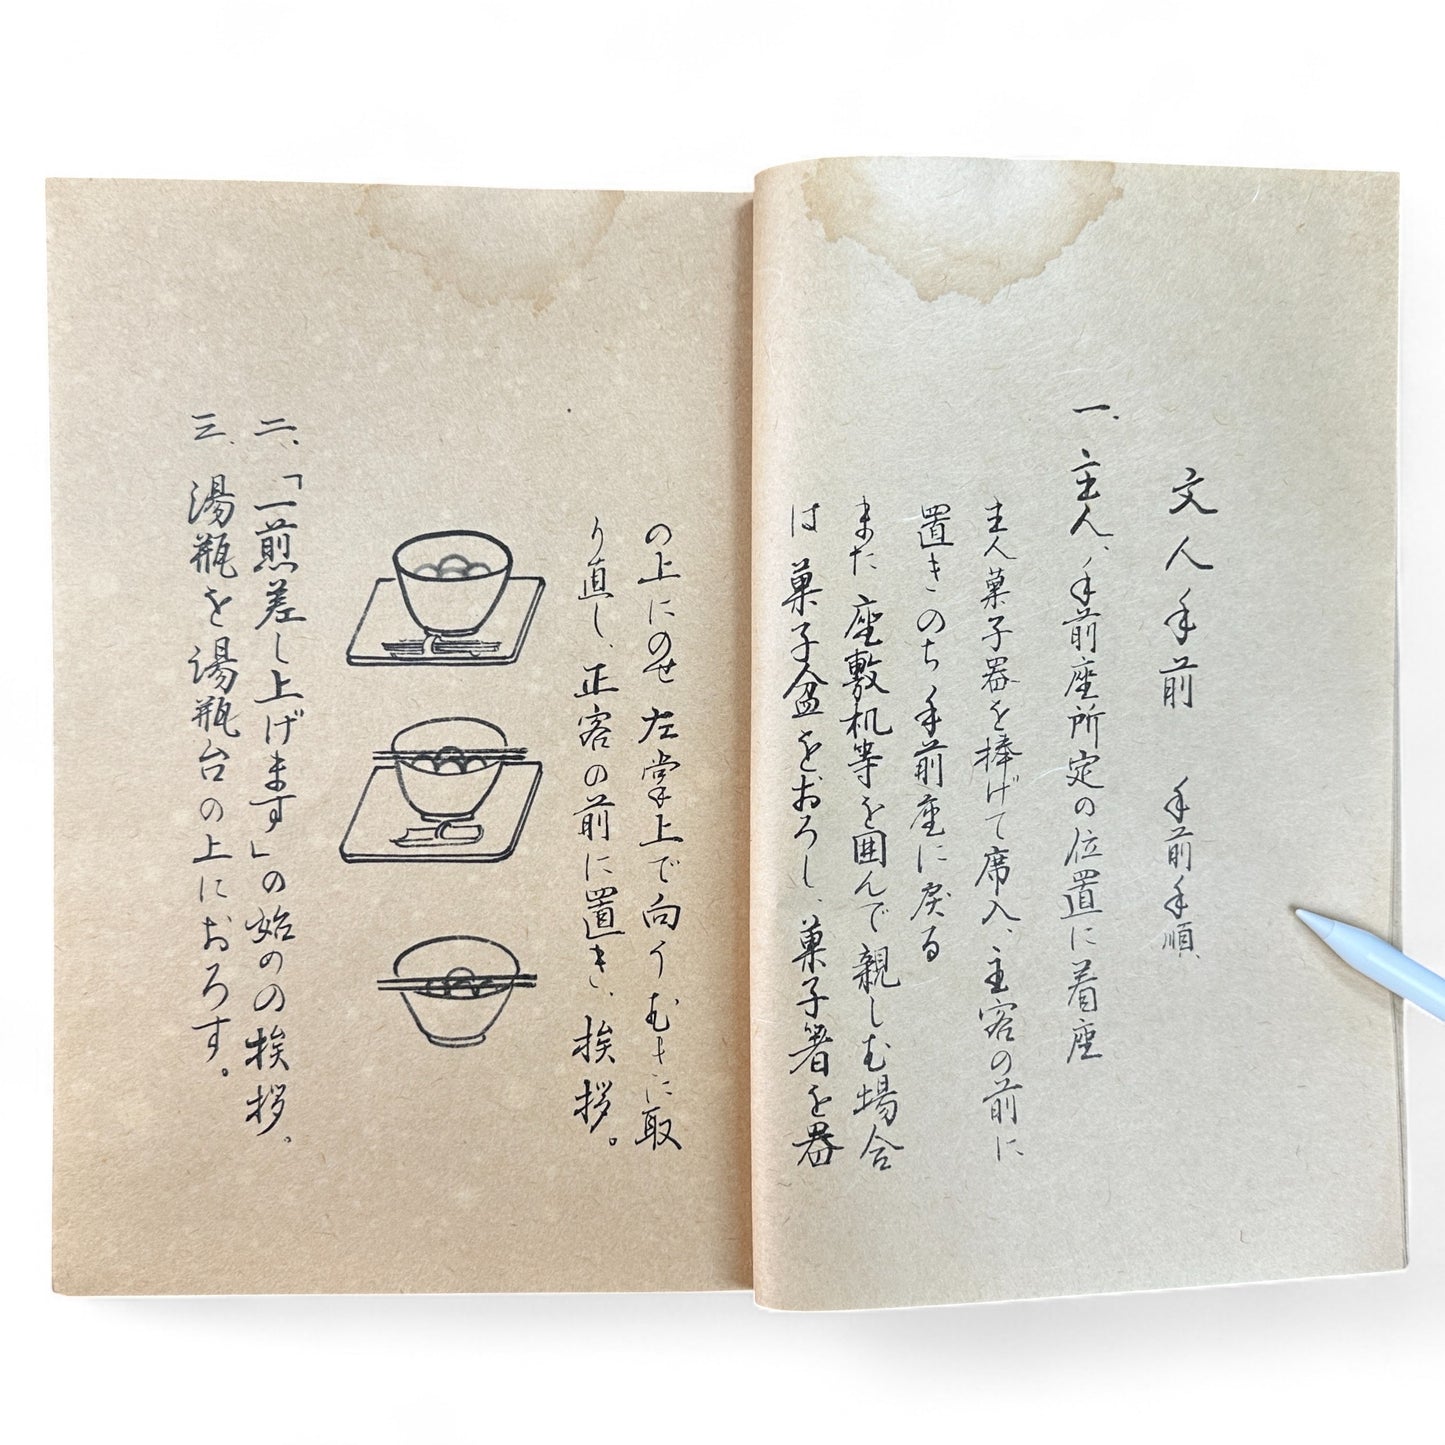 文人手前　手前手順
一、主人、手前座所定の位置に着座
主人菓子器を捧げて席入、主客の前に
置きのち手前座に戻る
また座敷机等を囲んで親しむ場合
は菓子盆をおろし、菓子箸を器
の上にのせ左掌上で向うむきに取
り直し、正客の前に置き、挨拶。
二、「一煎差し上げます」の始のの挨拶。
三、湯瓶を湯瓶台の上におろす。